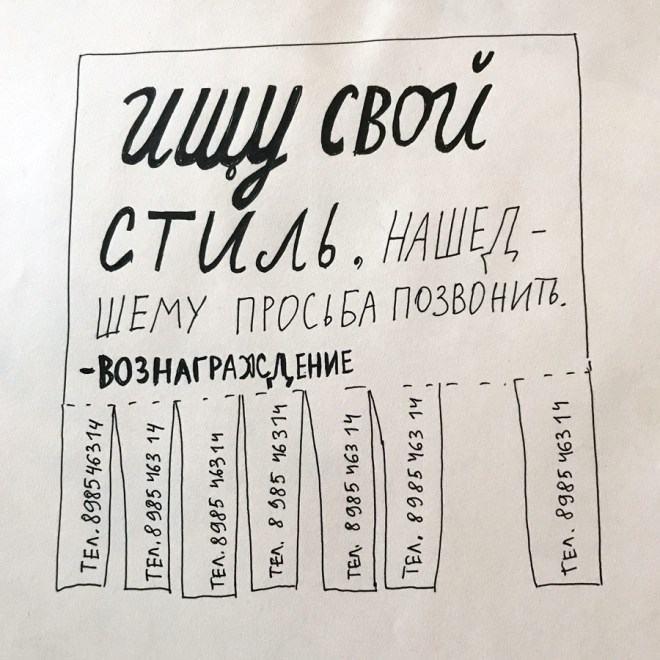 ищу свой
стиль. НАШЕД-
ШЕМУ ПРОСЬБА ПОЗВОНИТЬ.
-ВОЗНАГРАЖДЕНИЕ
ТЕЛ. 898546314
ТЕЛ. 8985 46314
ТЕЛ. 8985 46314
ТЕЛ. 8 985 46314
ТЕЛ. 8985 46314
ТЕЛ. 8985 46314
ТЕЛ. 8985 46314